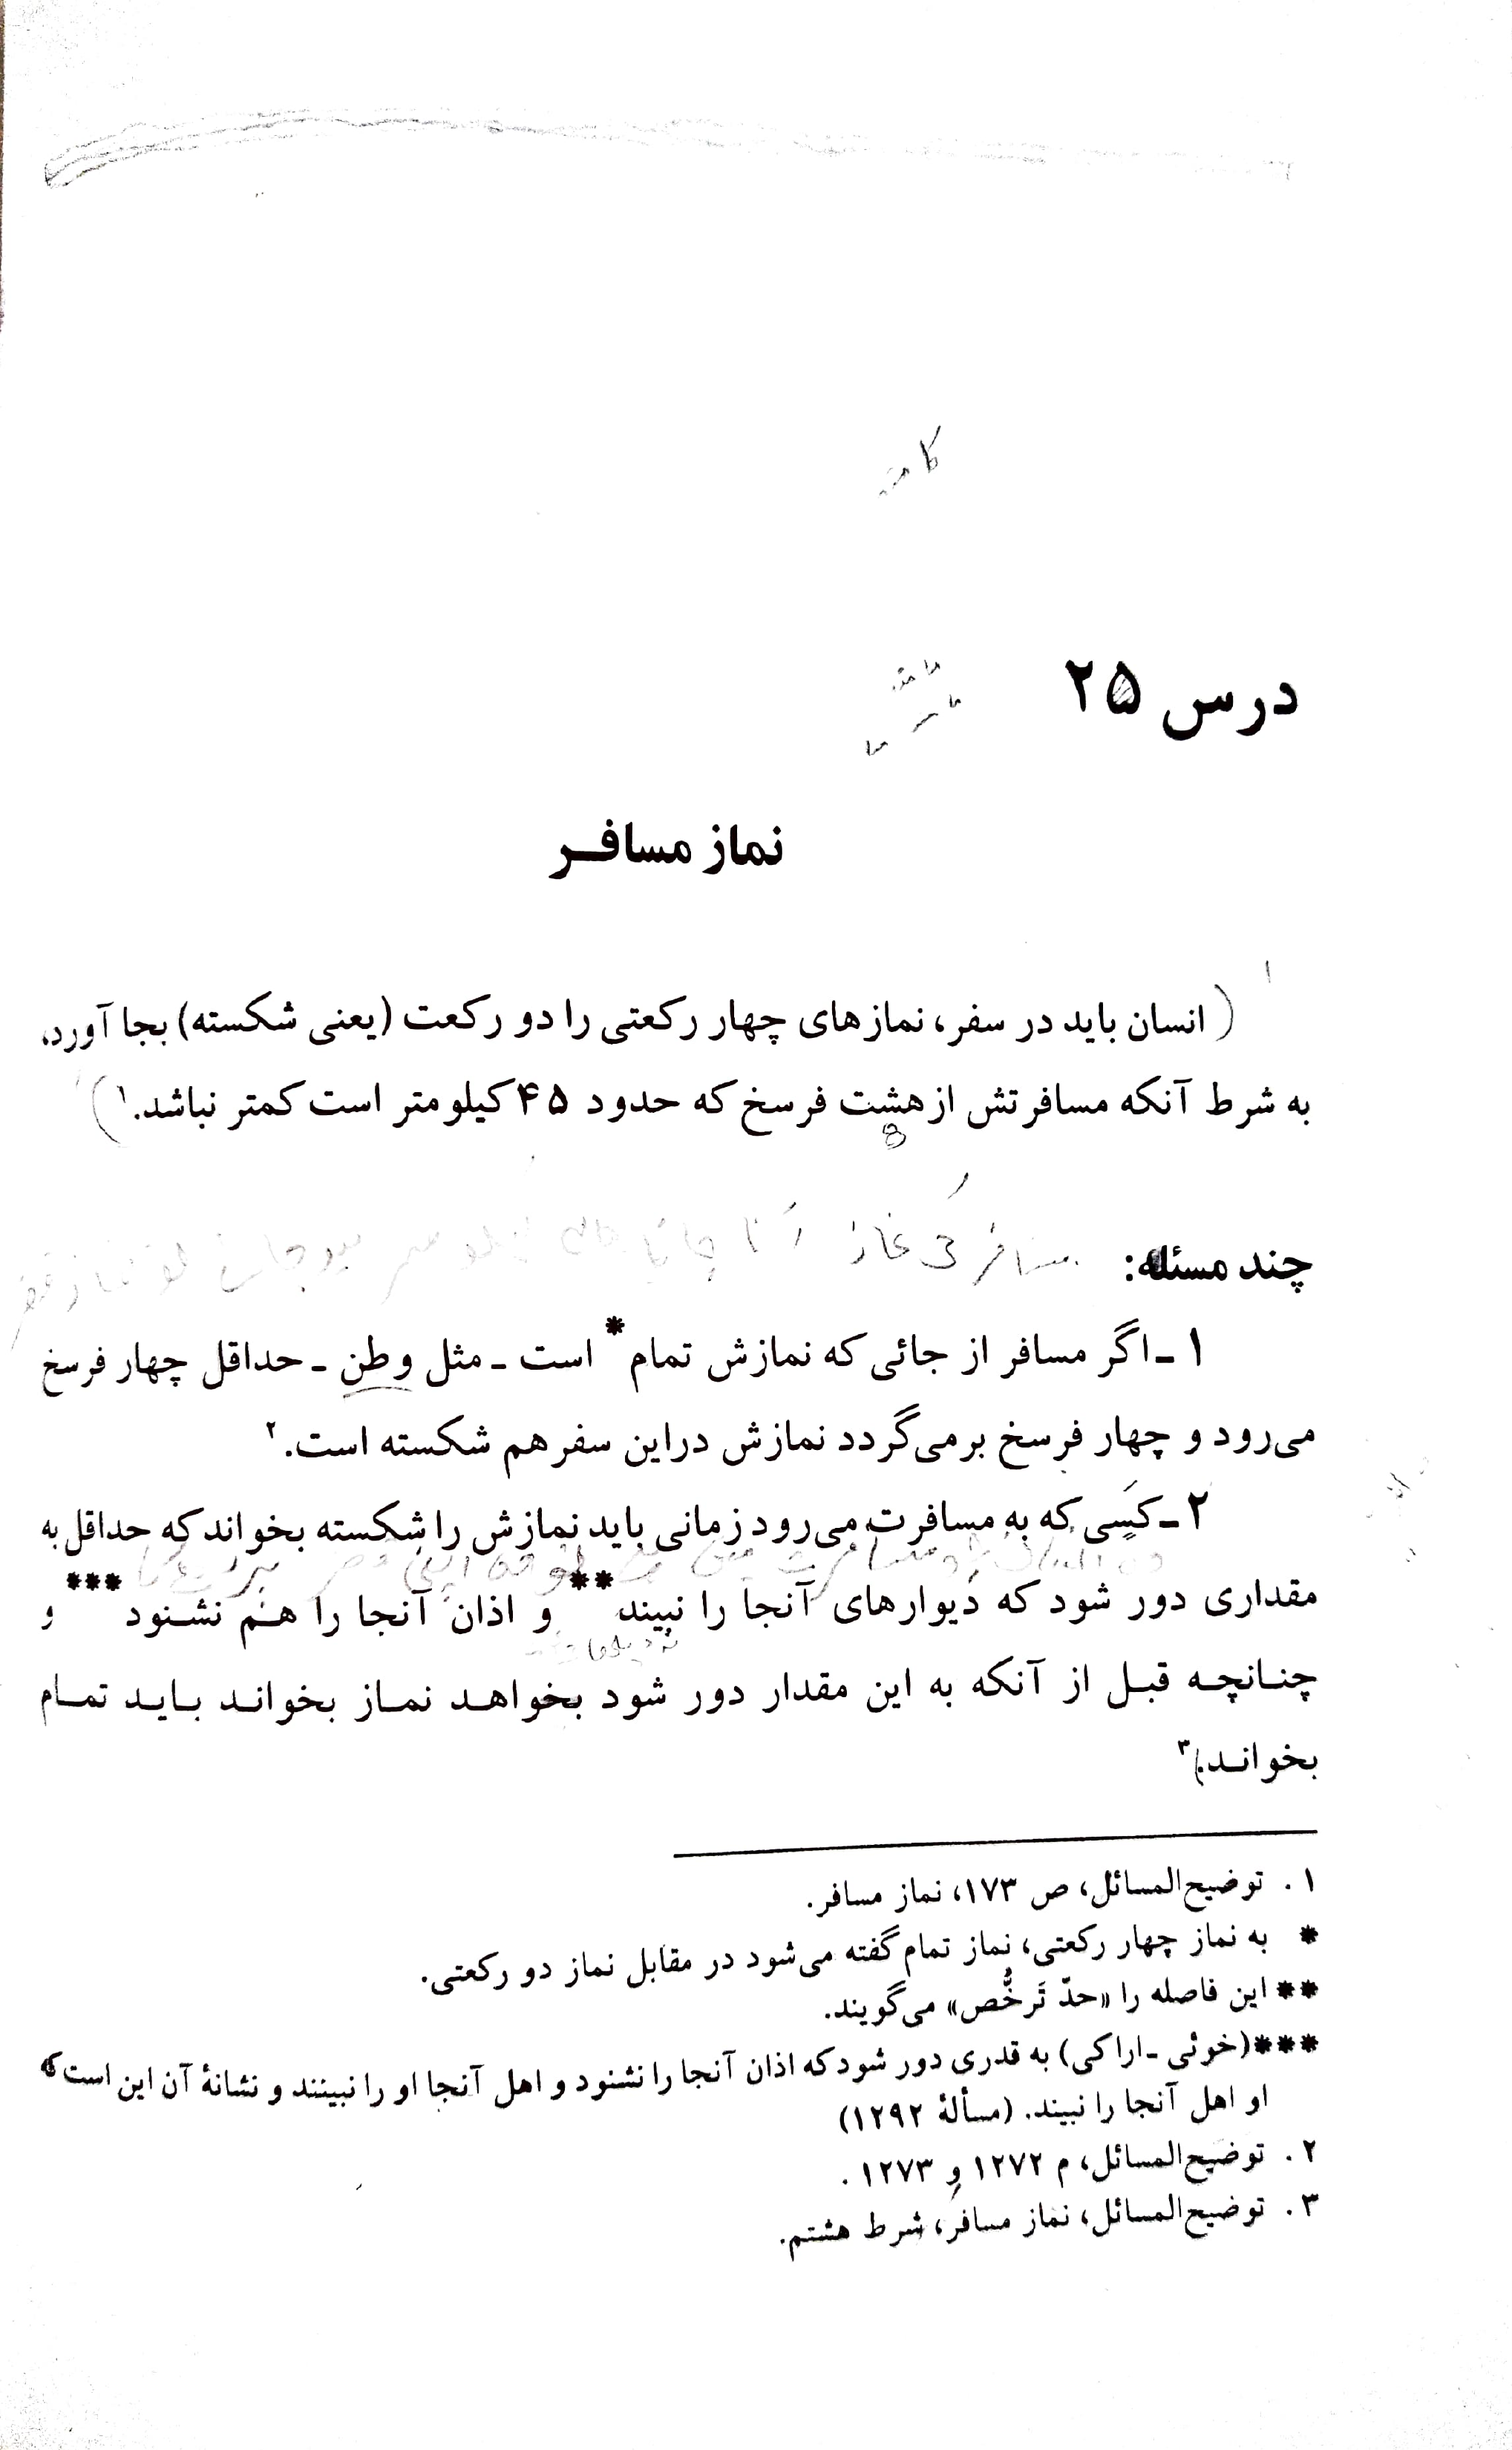 درس ۲۵
نماز مسافـر
( انسان باید در سفر، نمازهای چهار رکعتی را دو رکعت (یعنی شکسته) بجا آورد،
به شرط آنکه مسافرتش از هشت فرسخ که حدود ۴۵ کیلومتر است کمتر نباشد.۱ )
8
چند مسئله:
۱ـ اگر مسافر از جائی که نمازش تمام* است ـ مثل وطن ـ حداقل چهار فرسخ
می‌رود و چهار فرسخ برمی‌گردد نمازش دراین سفر هم شکسته است.۲
۲ـ کسی که به مسافرت می‌رود زمانی باید نمازش را شکسته بخواند که حداقل به
مقداری دور شود که دیوارهای آنجا را نبیند** و اذان آنجا را هـم نشنود*** و
چنـانچـه قبـل از آنکه به این مقدار دور شود بخواهـد نمـاز بخوانـد بـایـد تمـام
بخوانـد.)۳
۱ . توضیح‌المسائل، ص ۱۷۳، نماز مسافر.
* به نماز چهار رکعتی، نماز تمام گفته می‌شود در مقابل نماز دو رکعتی.
** این فاصله را «حدّ تَرخُّص» می‌گویند.
***(خوئی ـ اراکی) به قدری دور شود که اذان آنجا را نشنود و اهل آنجا او را نبینند و نشانهٔ آن این است که
او اهل آنجا را نبیند. (مسألهٔ ۱۲۹۲)
۲ . توضیح‌المسائل، م ۱۲۷۲ و ۱۲۷۳ .
۳ . توضیح‌المسائل، نماز مسافر، شرط هشتم.